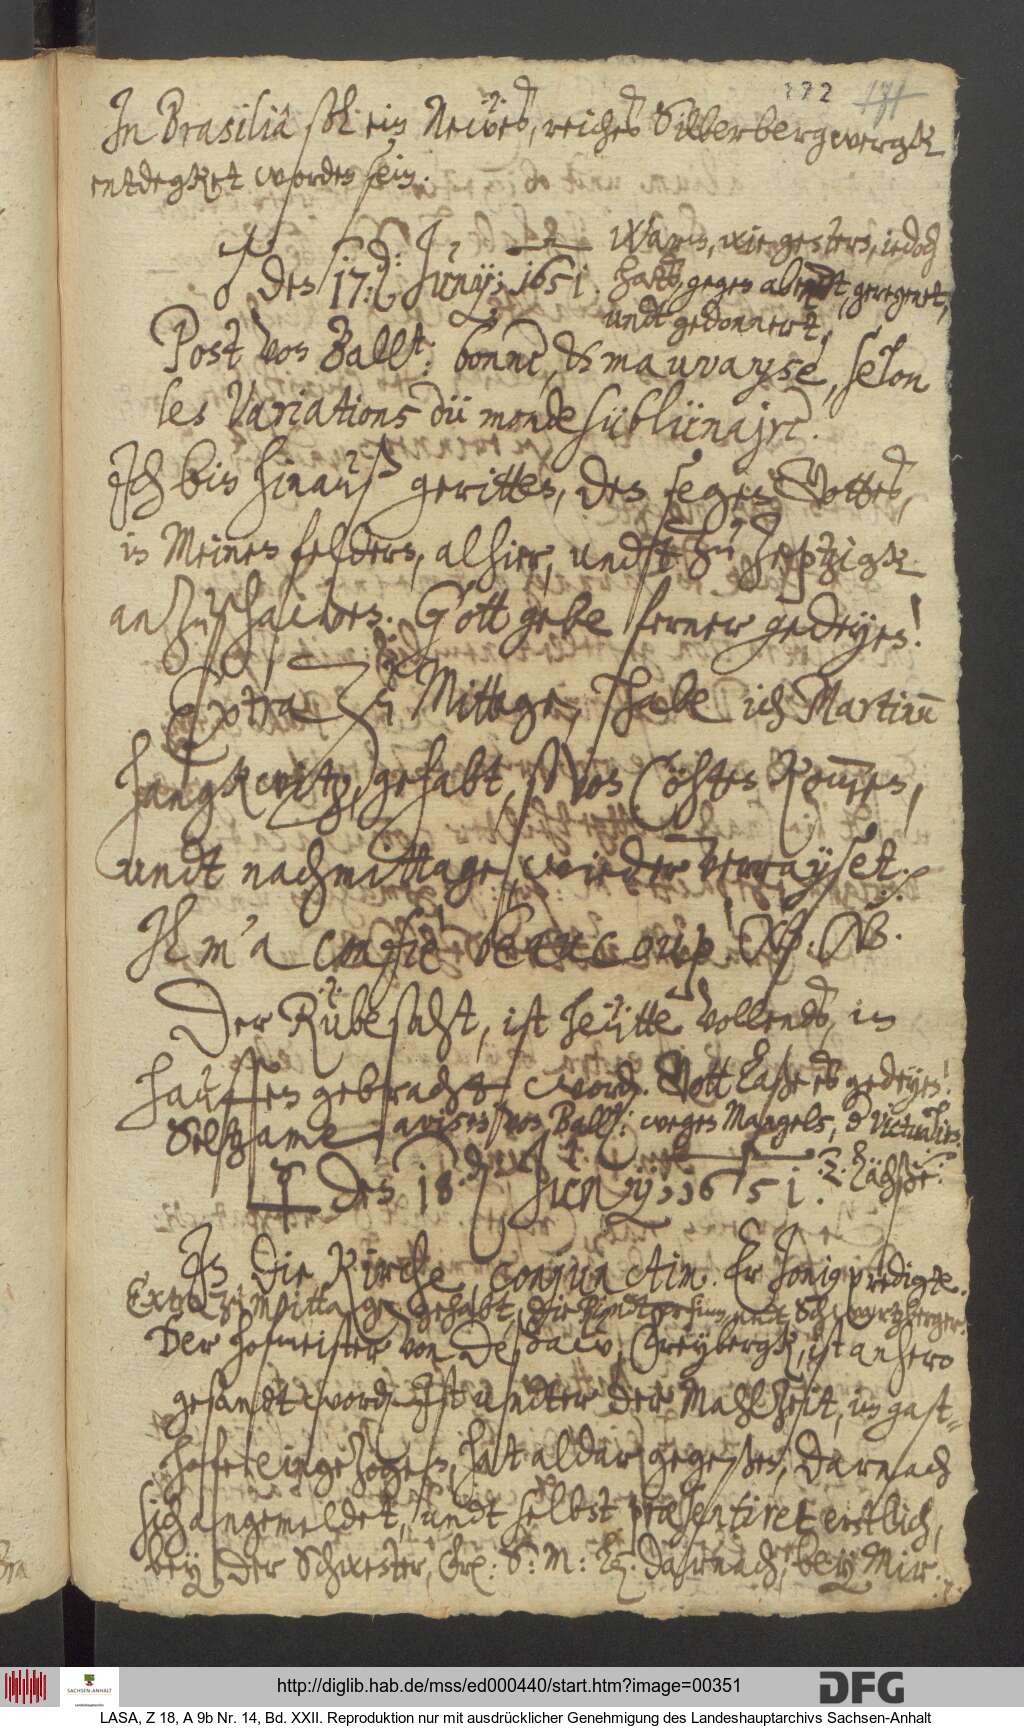 172 171
In Brasilia soll ein Neẅes, reiches Silberbergwergk
entdegket worden sein.
♂ den 17. Junij: 1651. Warm, wie gestern, iedoch
hats, gegen abendt, geregenet,
undt gedonnert.
Post von Ballst: bonne, & mauvayse, selon
les Variations du monde sublunayre.
Ich bin hinauß geritten, den segen Gottes,
in Meinen feldern, alhier, undt zu Zeptzigk
anzuschawen. Gott gebe ferner gedeyen!
Extra zu Mittage, habe ich Martinum
Hangkwitz, gehabt, von Cöhten kommen,
undt nachmittage, wieder verrayset.
Il m'a confié beaucoup. NB. NB.
Der Rübesaht, ist heütte vollends, in
hauffen gebracht word. Gott laße es gedeyen!
Seltzame avisen von Ballst: wegen Mangels, d victualien.
☿ den 18. Junij, 1651.
In die Kirche, conjunctim. Er Jonig predigte.
Extra zu Mittage gehabt, die undt Schwartzberger.
Der hofmeister von Deßaw, Freybergk, ist anhero
gesandt word. Ist undter der Mahlzeit, im gast-
hofe eingezogen, hat aldar gegeßen, darnach
sich angemeldet, undt selbst præsentiret erstlich,
bey der Schwester, Frl: S: M: darnach, bey Mir.
http://diglib.hab.de/mss/ed000440/start.htm?image=00351
SACHSEN-ANHALT
DFG
LASA, Z 18, A 9b Nr. 14, Bd. XXII. Reproduktion nur mit ausdrücklicher Genehmigung des Landeshauptarchivs Sachsen-Anhalt